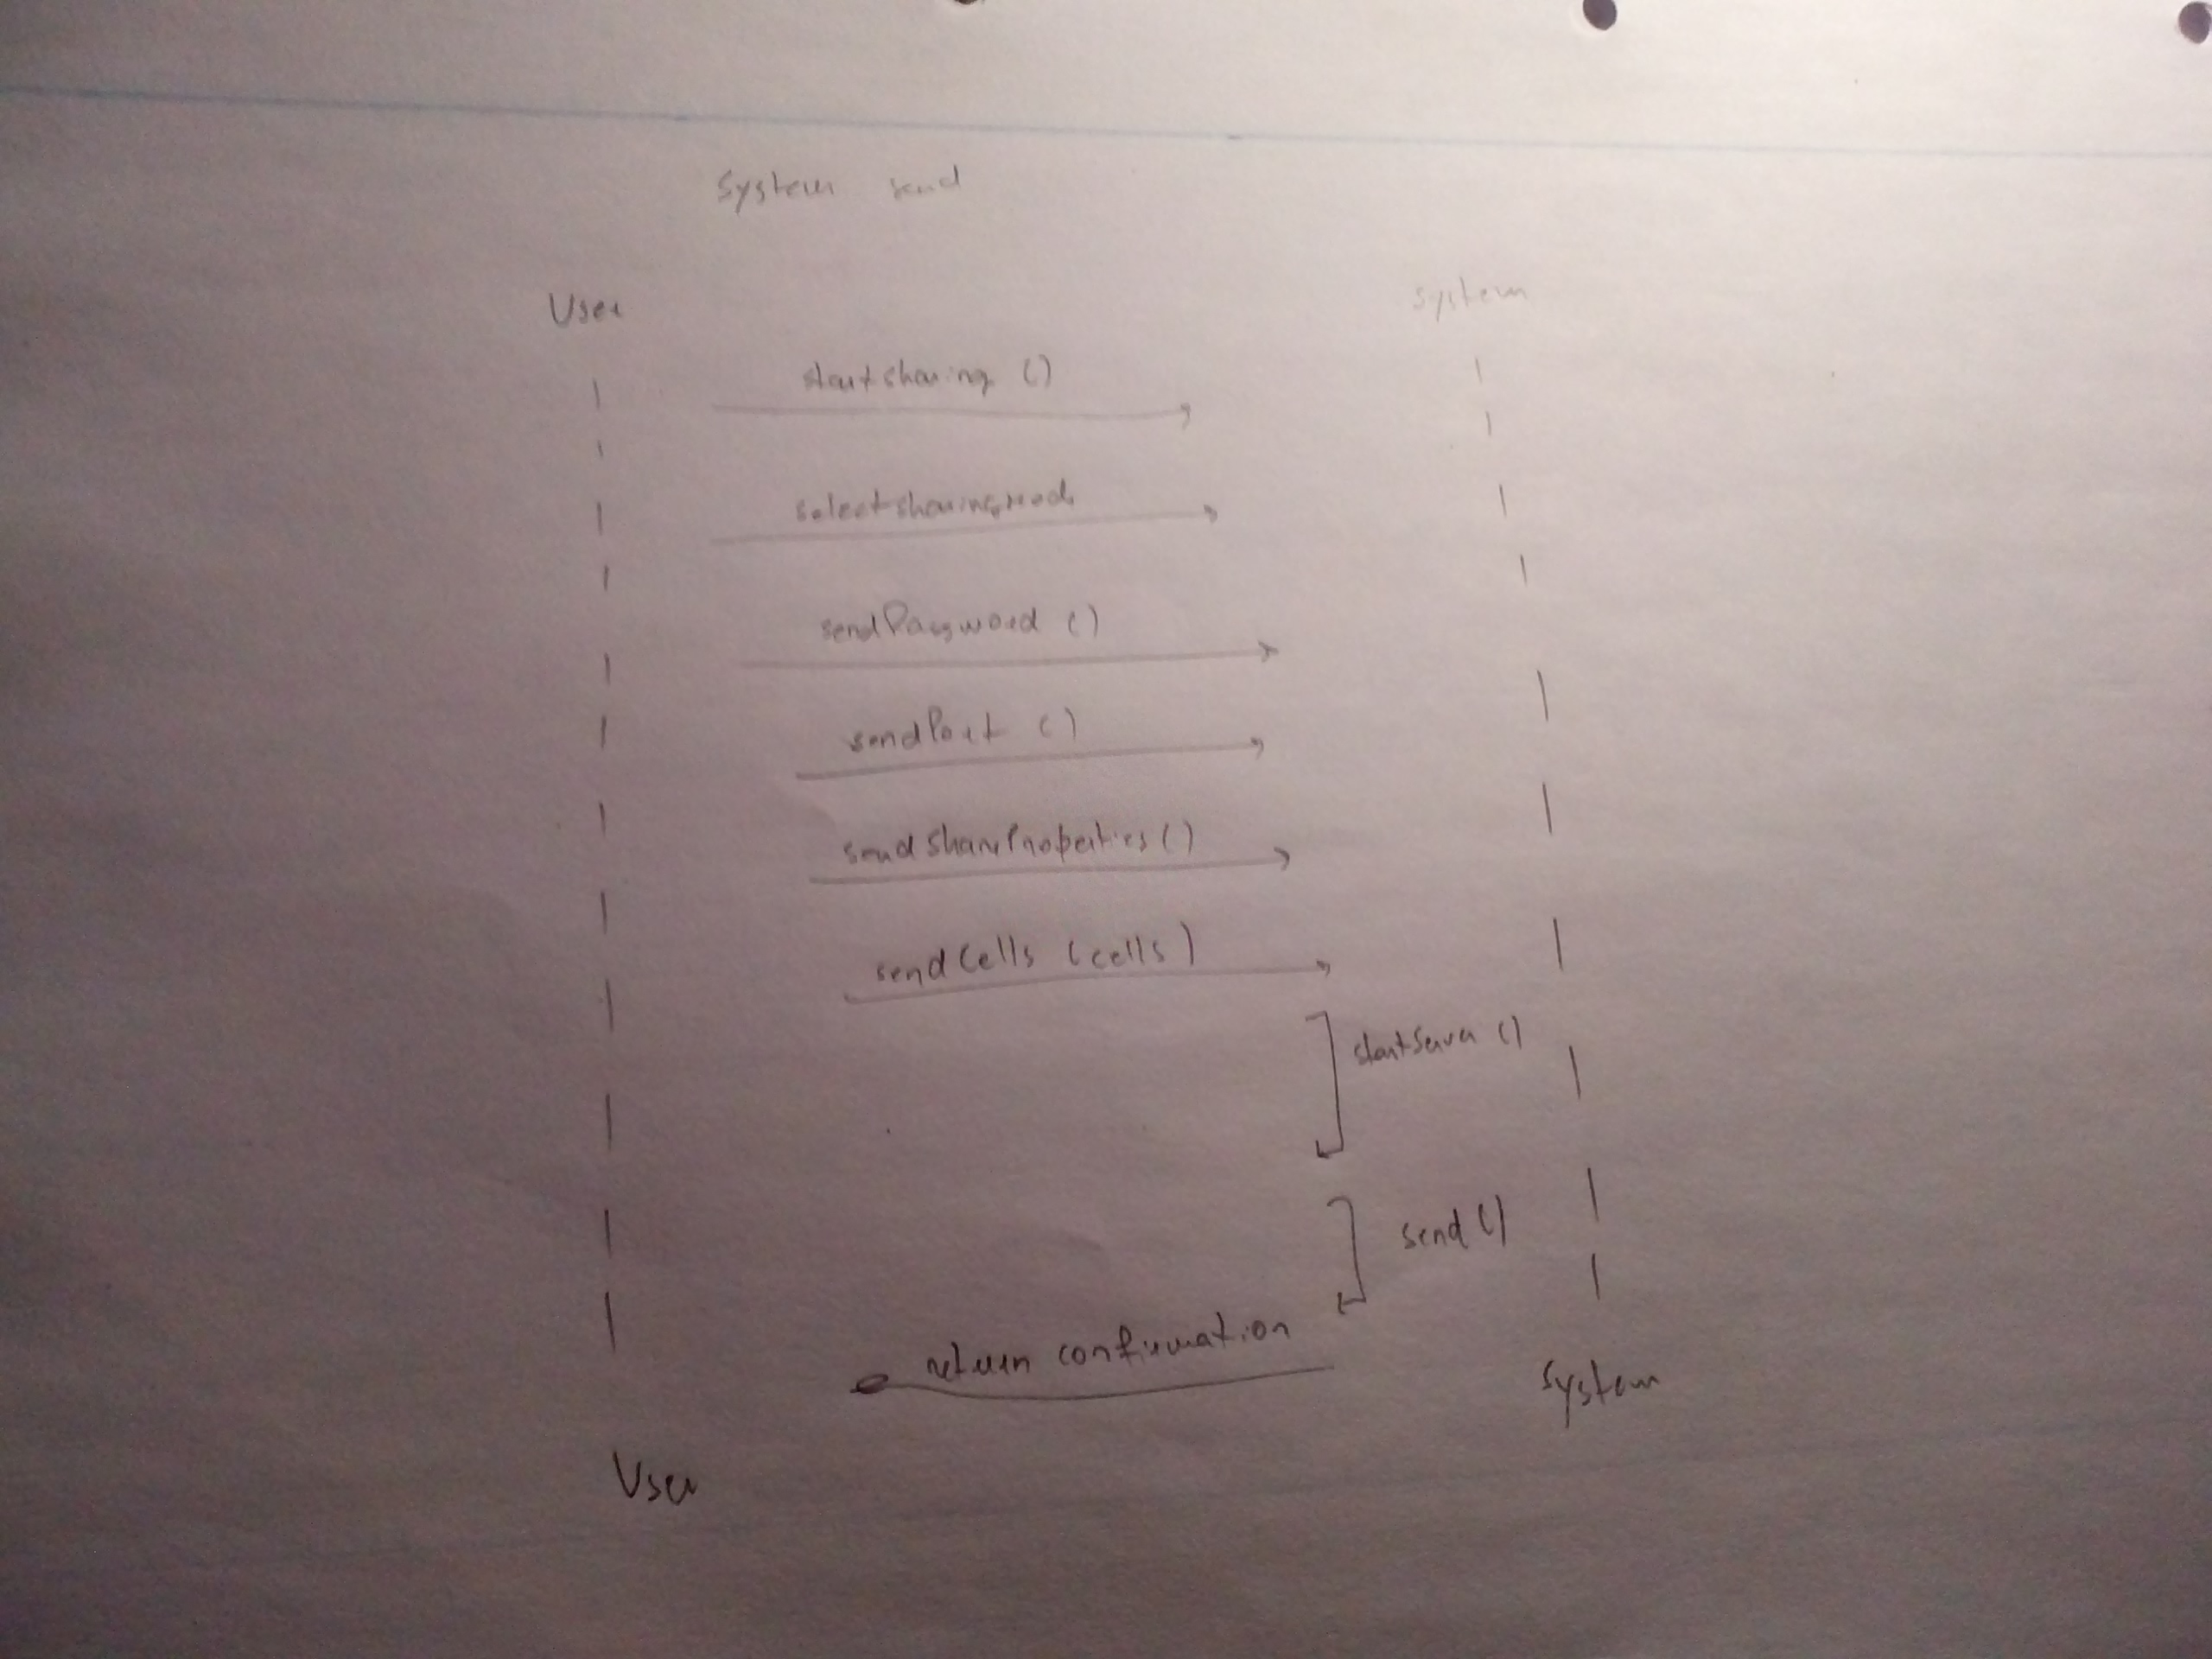 System send
User
system
startsharing ()
selectsharingmode
sendPassword ()
sendPort ()
sendShareProperties ()
sendCells (cells)
startServer ()
send ()
return confirmation
System
User